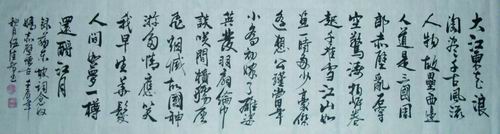 大江東去浪
淘盡千古風流
人物故壘西邊
人道是三國周
郎赤壁亂石穿
空驚濤拍岸卷
起千堆雪江山如
畫一時多少豪傑
遙想公瑾當年
小喬初嫁了雄姿
英發羽扇綸巾
談笑間檣櫓灰
飛煙滅故國神
遊多情應笑
我早生華髮
人間如夢一樽
還酹江月
錄蘇東坡詞念奴
嬌赤壁懷古